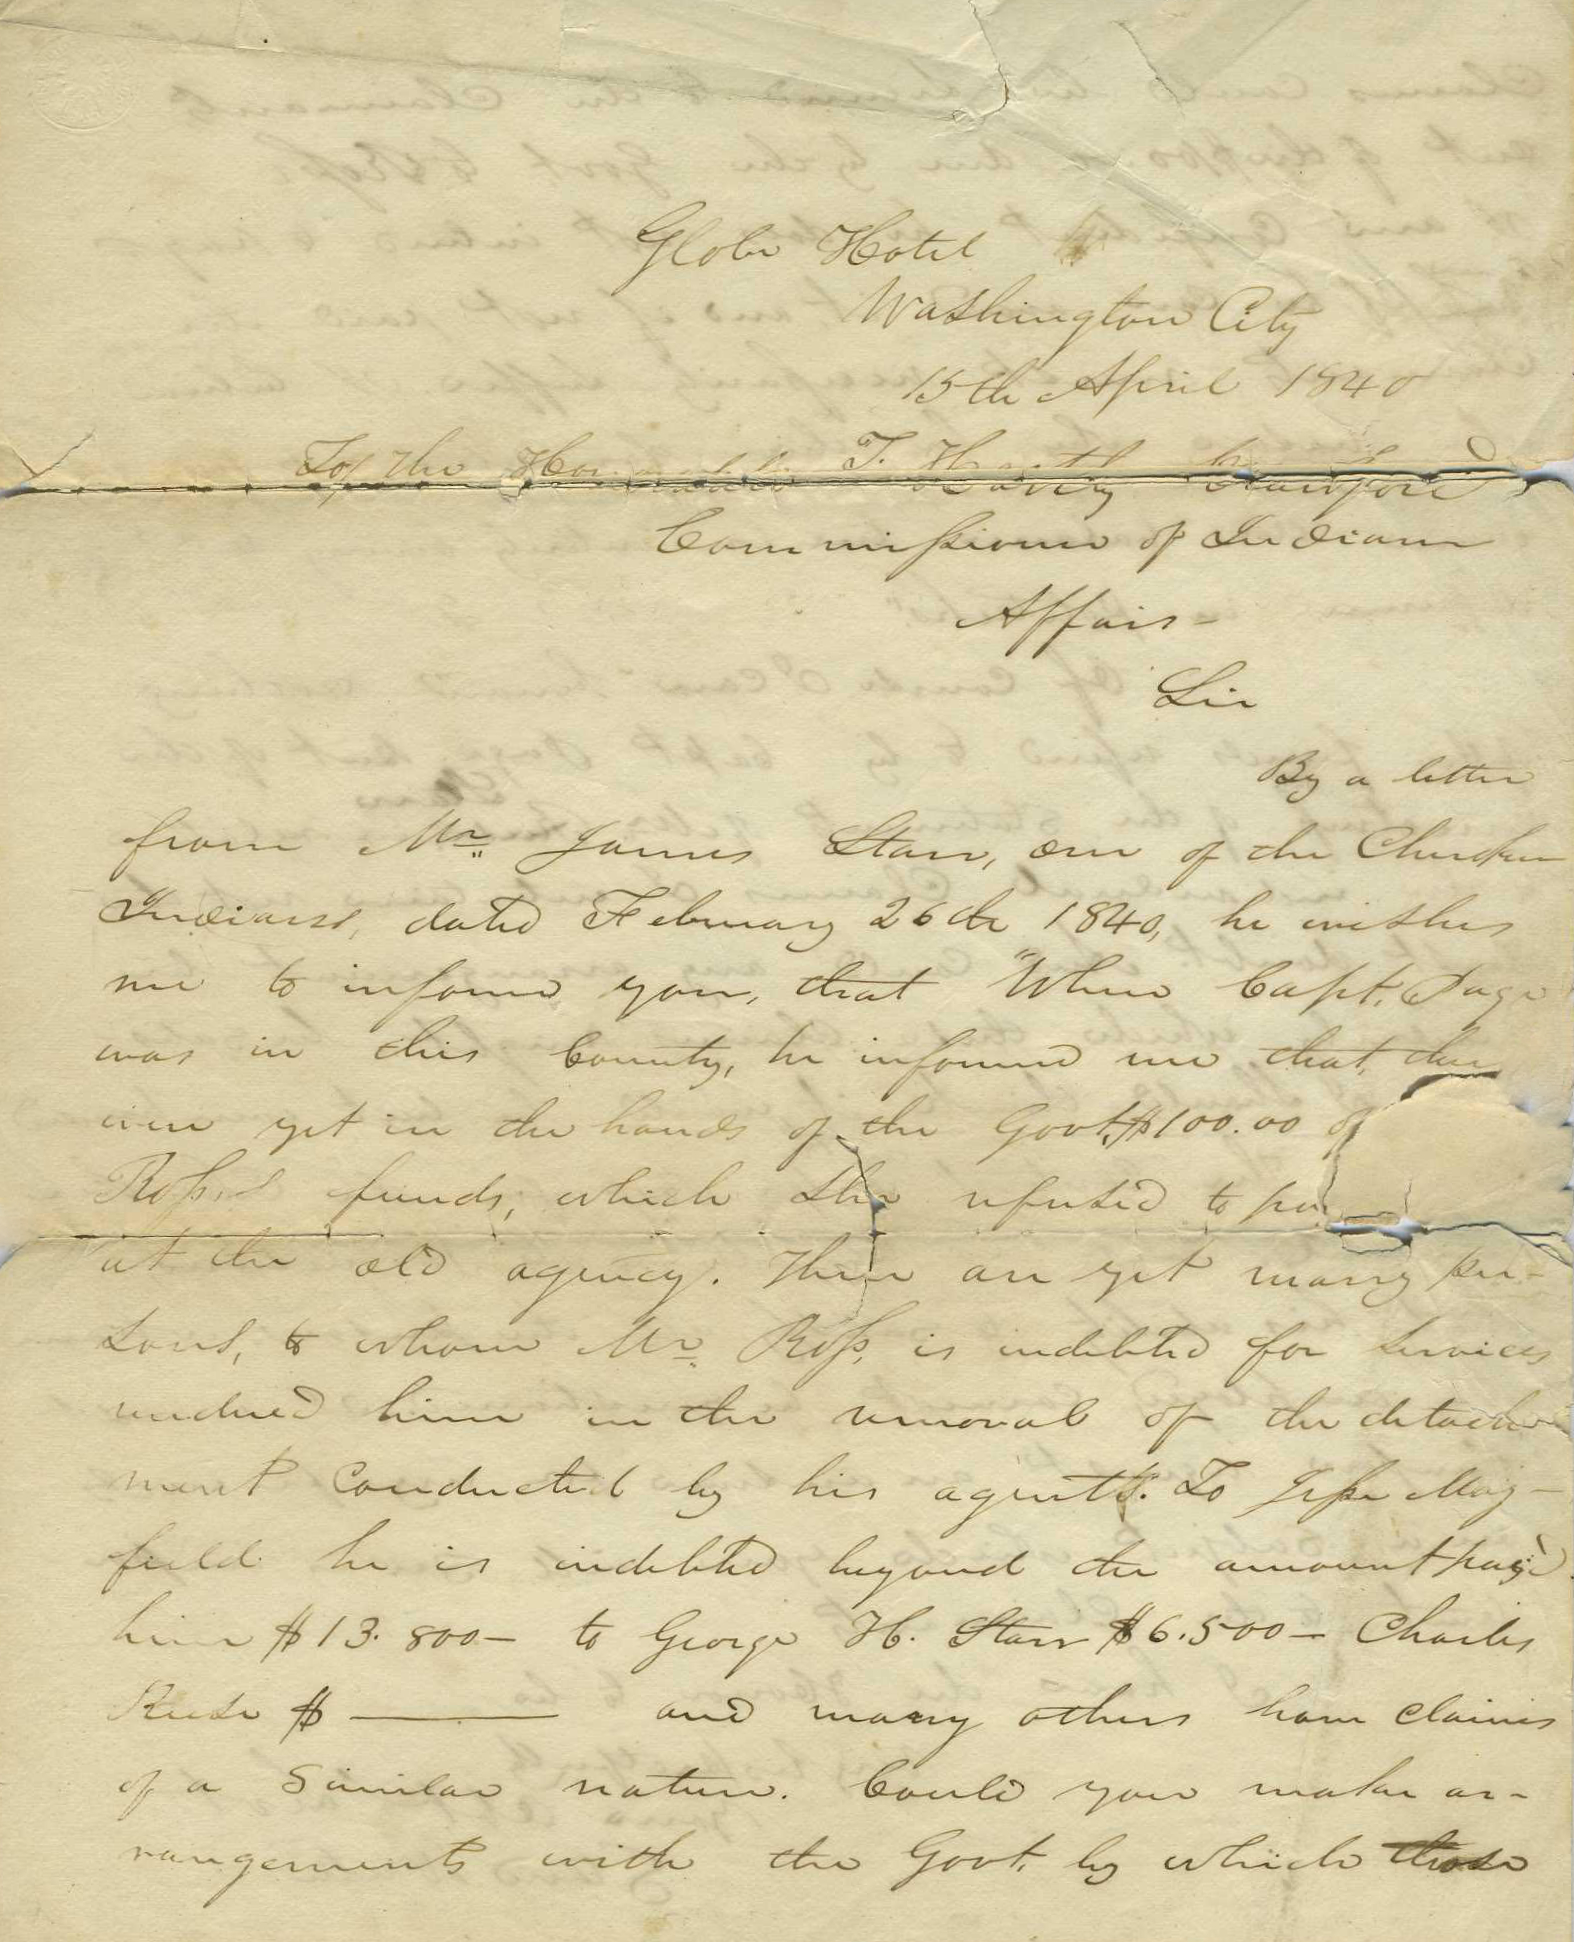 Globe Hotel
Washington City
15th April 1840
To, the Honorable T. Hartly Crawford
Commissioner of Indian
Affairs-
Sir
By a letter
from Mr. James Starr, one of the Cherokee
Indians, dated February 26th 1840, he wishes
me to inform you, that "When Capt. Page
was in this Country, he informed me that, there
were yet in the hands of the Govt. $100.00 of
Ross's funds, which she refused to
at the old agency. There are yet many per-
sons, to whom Mr. Ross, is indebted for services
rendered him in the removal of the detach
ment conducted by his agents. To Jesse May-
field he is indebted beyond the amount paid
him $13.800- to George H. Starr $6.500- Charles
Reese $ ——— and many others have claims
of a similar nature. Could you make ar-
rangements with the Govt. by which those